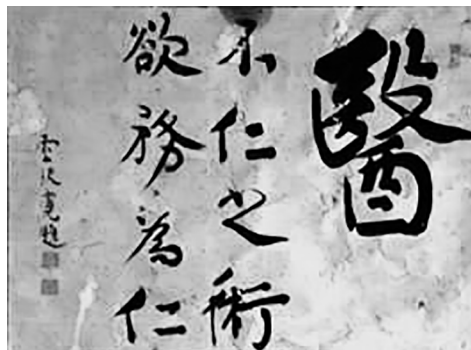 醫
不仁之術
欲務為仁